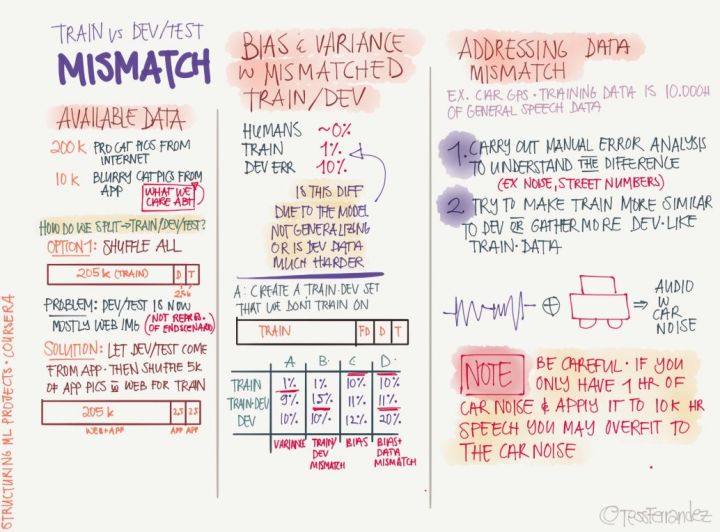 TRAIN vs DEV/TEST
MISMATCH
AVAILABLE DATA
200k PRO CAT PICS FROM
INTERNET
10k BLURRY CAT PICS FROM
APP WHAT WE
CARE ABT
HOW DO WE SPLIT → TRAIN/DEV/TEST?
OPTION 1: SHUFFLE ALL
205k (TRAIN) D T
2.5k
PROBLEM: DEV/TEST IS NOW
MOSTLY WEB IMG (NOT REPR.
OF END SCENARIO)
SOLUTION: LET DEV/TEST COME
FROM APP. THEN SHUFFLE 5K
OF APP PICS W WEB FOR TRAIN
205k 2.5 2.5
WEB+APP APP APP
BIAS & VARIANCE
W MISMATCHED
TRAIN/DEV
HUMANS ~0%
TRAIN 1%
DEV ERR 10%
IS THIS DIFF
DUE TO THE MODEL
NOT GENERALIZING
OR IS DEV DATA
MUCH HARDER
A: CREATE A TRAIN-DEV SET
THAT WE DON'T TRAIN ON
TRAIN TD D T
A B C D
TRAIN 1% 1% 10% 10%
TRAIN-DEV 9% 1.5% 11% 11%
DEV 10% 10% 12% 20%
VARIANCE TRAIN/ BIAS BIAS+
DEV DATA
MISMATCH MISMATCH
ADDRESSING DATA
MISMATCH
EX. CAR GPS • TRAINING DATA IS 10.000H
OF GENERAL SPEECH DATA
1. CARRY OUT MANUAL ERROR ANALYSIS
TO UNDERSTAND THE DIFFERENCE
(EX NOISE, STREET NUMBERS)
2. TRY TO MAKE TRAIN MORE SIMILAR
TO DEV OR GATHER MORE DEV-LIKE
TRAIN-DATA
AUDIO
W CAR
NOISE
NOTE BE CAREFUL • IF YOU
ONLY HAVE 1 HR OF
CAR NOISE & APPLY IT TO 10K HR
SPEECH YOU MAY OVERFIT TO
THE CAR NOISE
STRUCTURING ML PROJECTS • COURSERA
©TessFerrandez